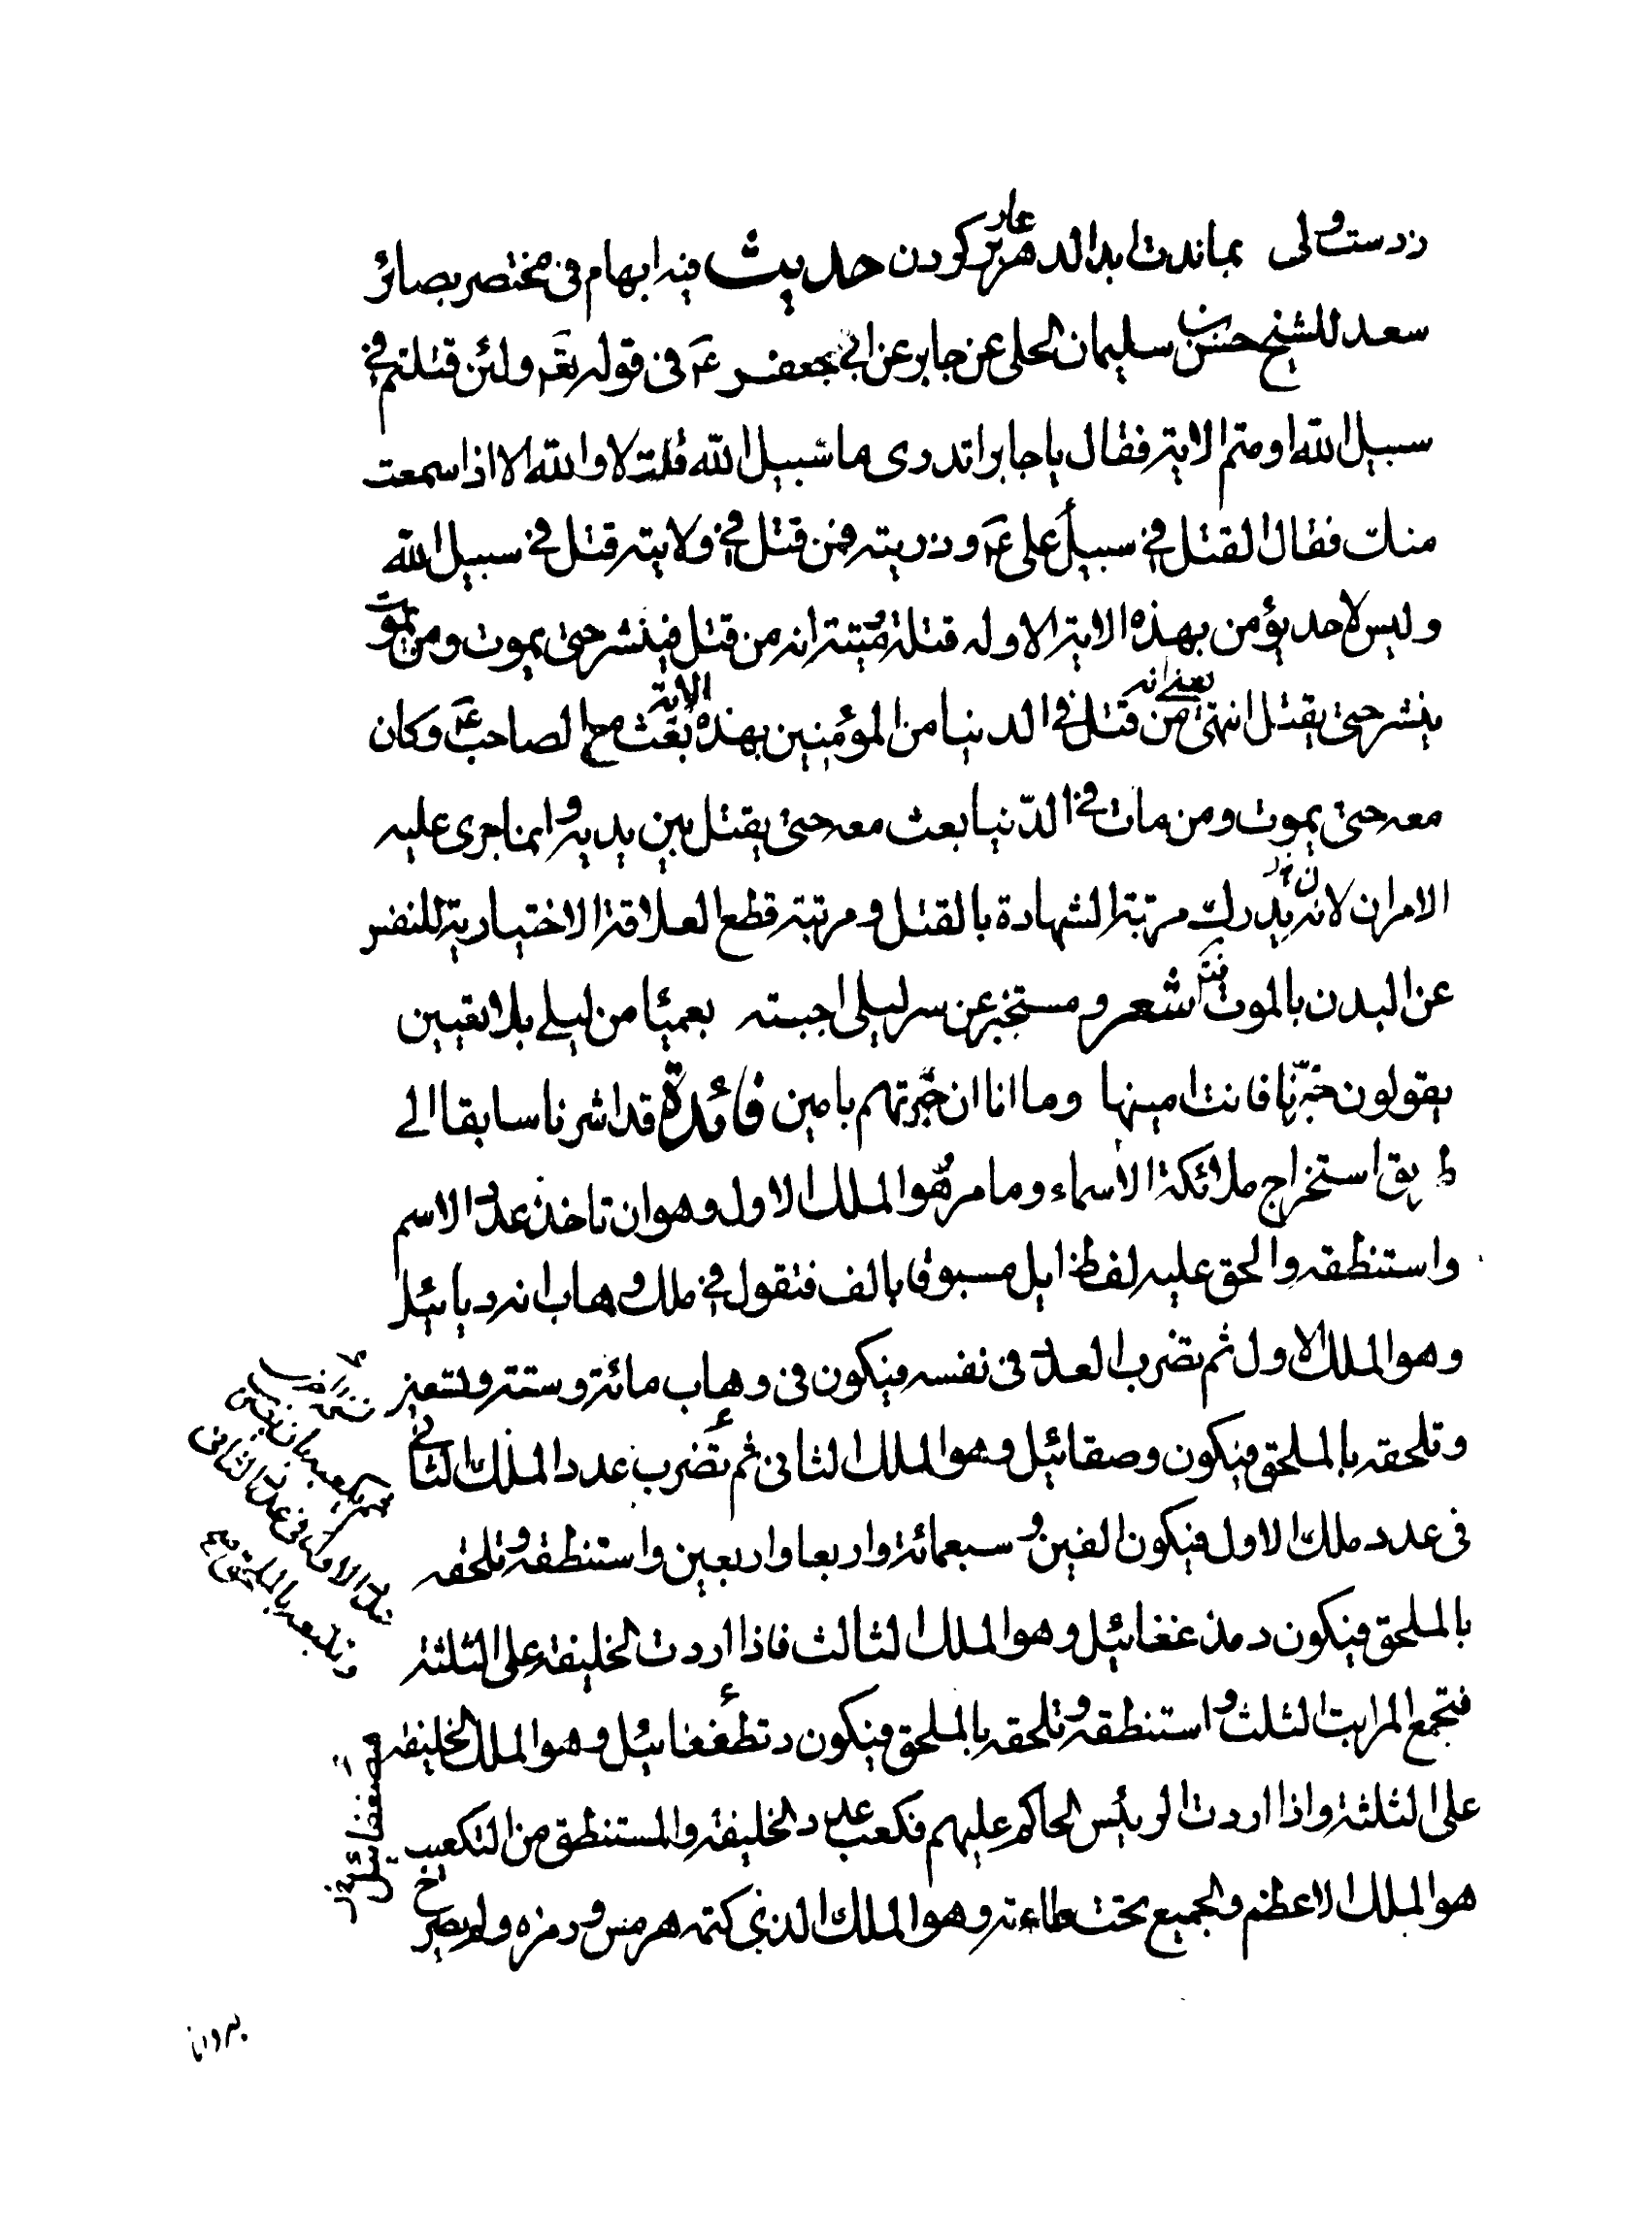 زدست ولی بماندت ابد الدهر عار بر کردن حدیث فیه ابهام فی مختصر بصائر
سعد للشیخ حسن بن سلیمان الحلی عن جابر عن ابی جعفر عم فی قوله تعم ولئن قتلتم فی
سبیل الله او متم الایة فقال یا جابر اتدری ما سبیل الله قلت لا والله الا اذا سمعت
منك فقال القتل فی سبیل علی عم و ذریته فمن قتل فی ولایته قتل فی سبیل الله
ولیس لاحد یؤمن بهذه الایة الا وله قتلة و میتة انه من قتل فینشر حتی یموت ومن یموت
ینشر حتی یقتل انتهی یعنی انه من قتل فی الدنیا من المؤمنین بهذه الایة بعث مع الصاحب عم وکان
معه حتی یموت ومن مات فی الدنیا بعث معه حتی یقتل بین یدیه وانما جری علیه
الامران لانه یدرك مرتبة الشهادة بالقتل و مرتبة قطع العلاقة الاختیاریة للنفس
عن البدن بالموت شعر و مستخبر عن سر لیلی اجبته بعمیاء من لیلی بلا تعیین
یقولون خبرنا فانت امینها وما انا ان خبرتهم بامین فائدة قد اشرنا سابقا الی
طریق استخراج ملائكة الاسماء وما مر هو الملك الاول وهو ان تاخذ عدد الاسم
واستنطقه والحق علیه لفظ ایل مسبوقا بالف فتقول فی ملك وهاب انه دیائیل
وهو الملك الاول ثم تضرب العدد فی نفسه فیکون فی وهاب مائة وستة وتسعین
وتلحقه بالملحق فیکون وصقائیل وهو الملك الثانی ثم تضرب عدد الملك الثانی
فی عدد ملك الاول فیکون الفین و سبعمائة واربعا واربعین واستنطقه وتلحقه
بالملحق فیکون دمذغغائیل وهو الملك الثالث فاذا اردت الخلیفة علی الثلثة
فتجمع المراتب الثلث و استنطقه وتلحقه بالملحق فیکون دنظغغائیل وهو الملك الخلیفة
علی الثلثة واذا اردت الرئیس الحاکم علیهم فکعب عدد الخلیفة والمستنطق من التکعیب
هو الملك الاعظم والجمیع تحت طاعته وهو الملك الذی کتمه هرمس ورمزه ولم یصرح